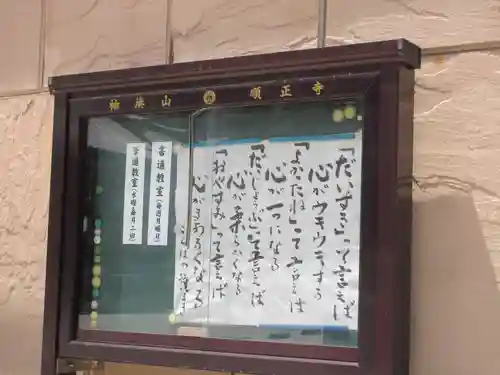 山 順正寺
「だいすき」って言えば
心がウキウキする
「よかったね」って言えば
心が一つになる
「だいじょうぶ」って言えば
心が柔らかくなる
「おやすみ」って言えば
心があかるくなる
書道教室(毎週月曜日)
筆道教室(水曜毎月二回)